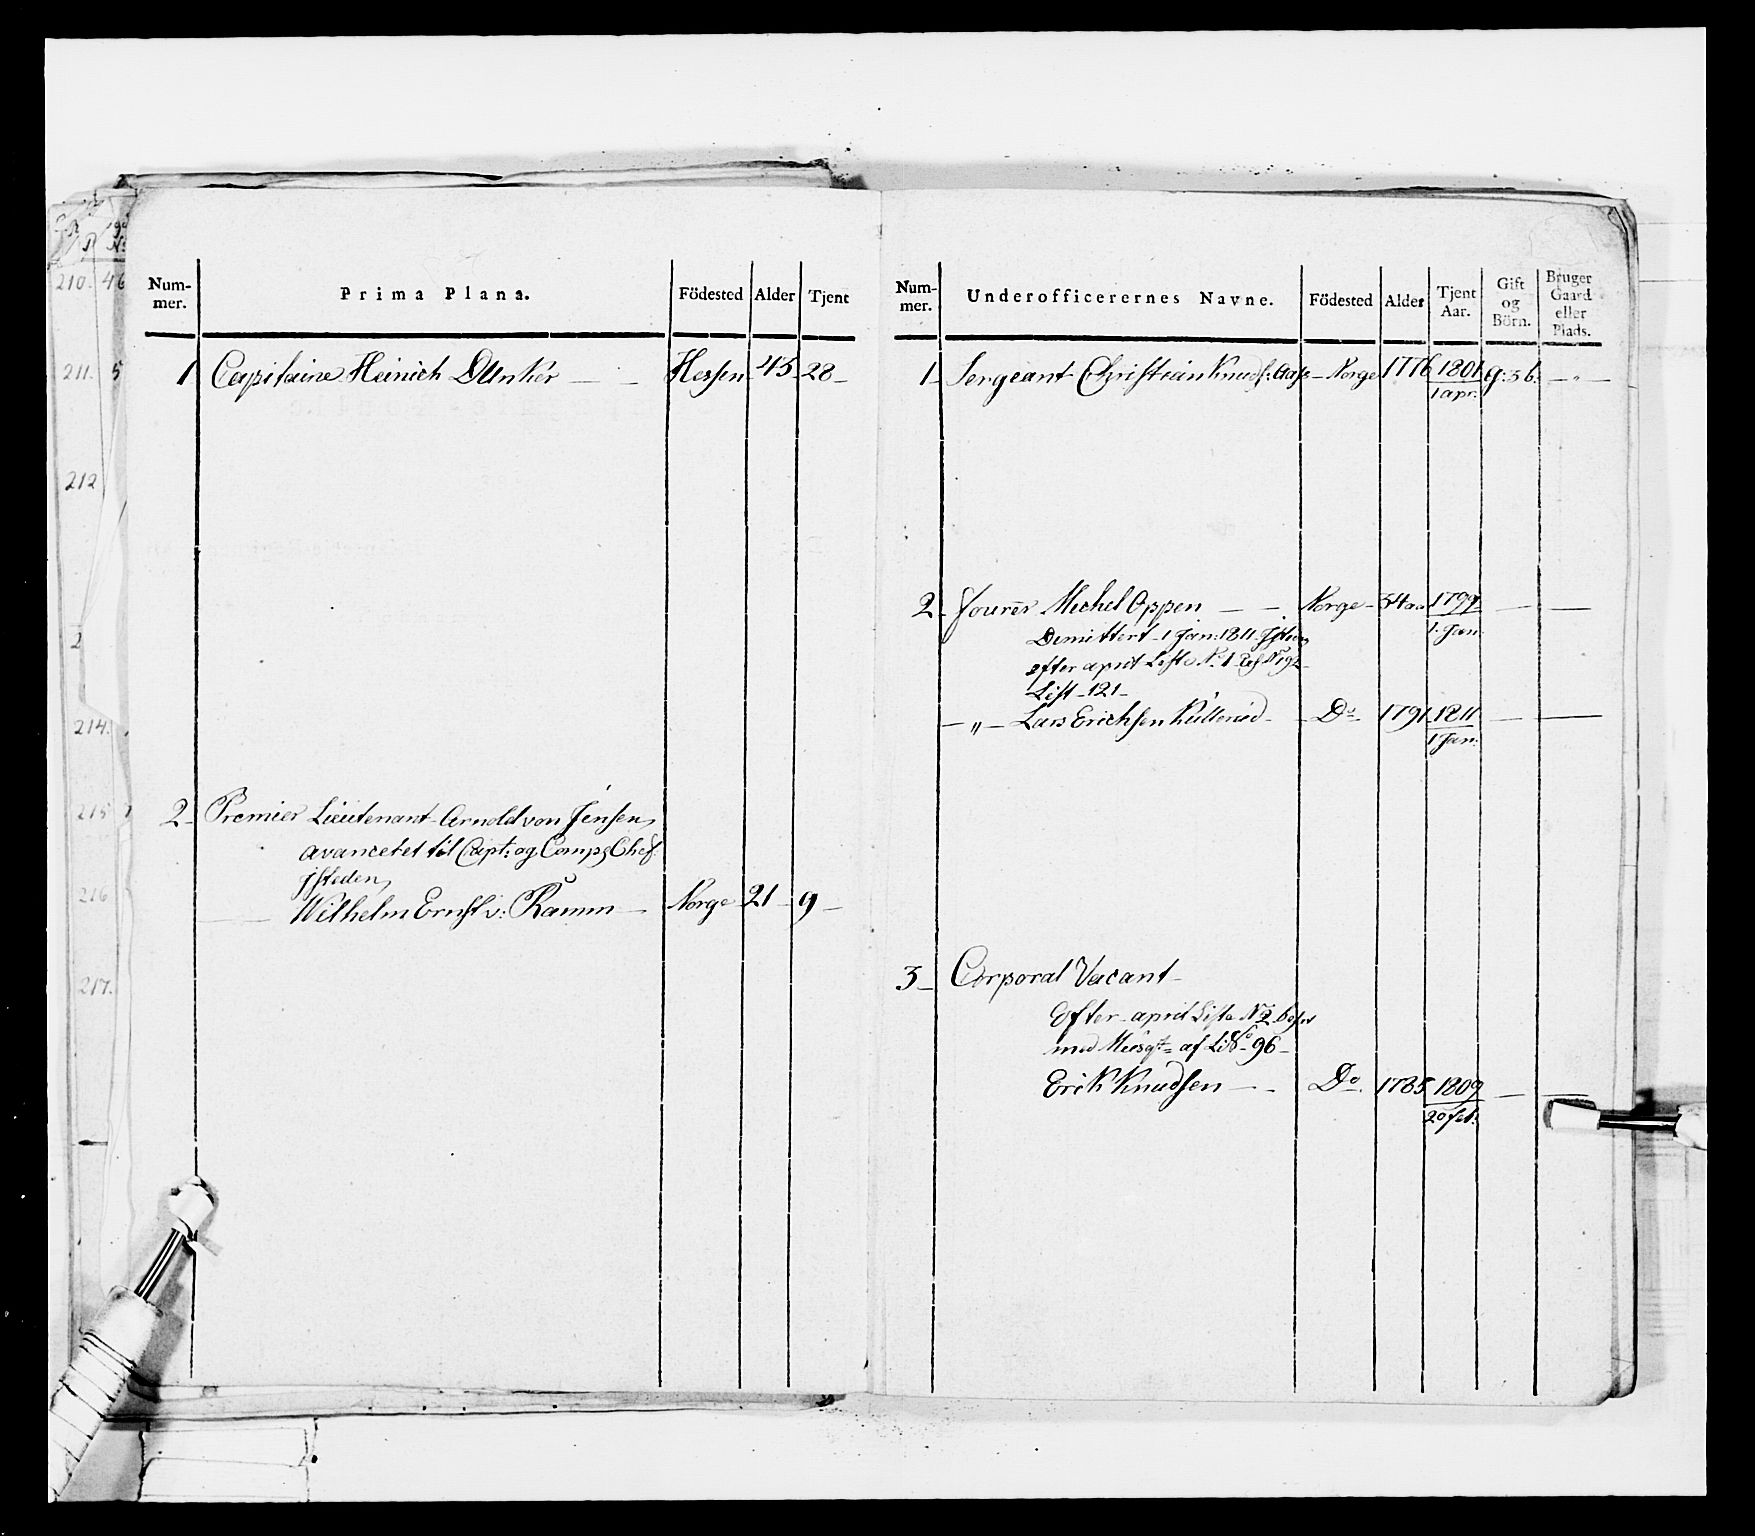 210. 46
211. 5
212
2
214.
215
216
217.
Num-
mer.
Prima Plana.
Födested
Alder
Tjent
1 Capitaine Heinich Dunker Hessen 45 28
2 Premier Lieutenant Arnold von Jensen
avancetet til Capt: og Comp: Chef
isteden
Wilhelm Ernst v: Ramm Norge 21 9
Num-
mer.
Underofficerernes Navne.
Födested
Alder
Tjent
Aar.
Gift
og
Börn.
Bruger
Gaard
eller
Plads.
1 Sergeant Christian Knuds: Aas Norge 1776 1801 g: 3 b: — " —
1 apr:
2 Fourer Michel Oppen Norge 34 1799
Demittert 1 Jan: 1811 1. Jan
efter april Liste No 1
List 121
" Lars Erichsen Do 1791 1811
1 Jan:
3 Corporal Vacant
Efter april Liste No 2
med af No 96
Erik Knudsen Do 1785 1809
20 feb: